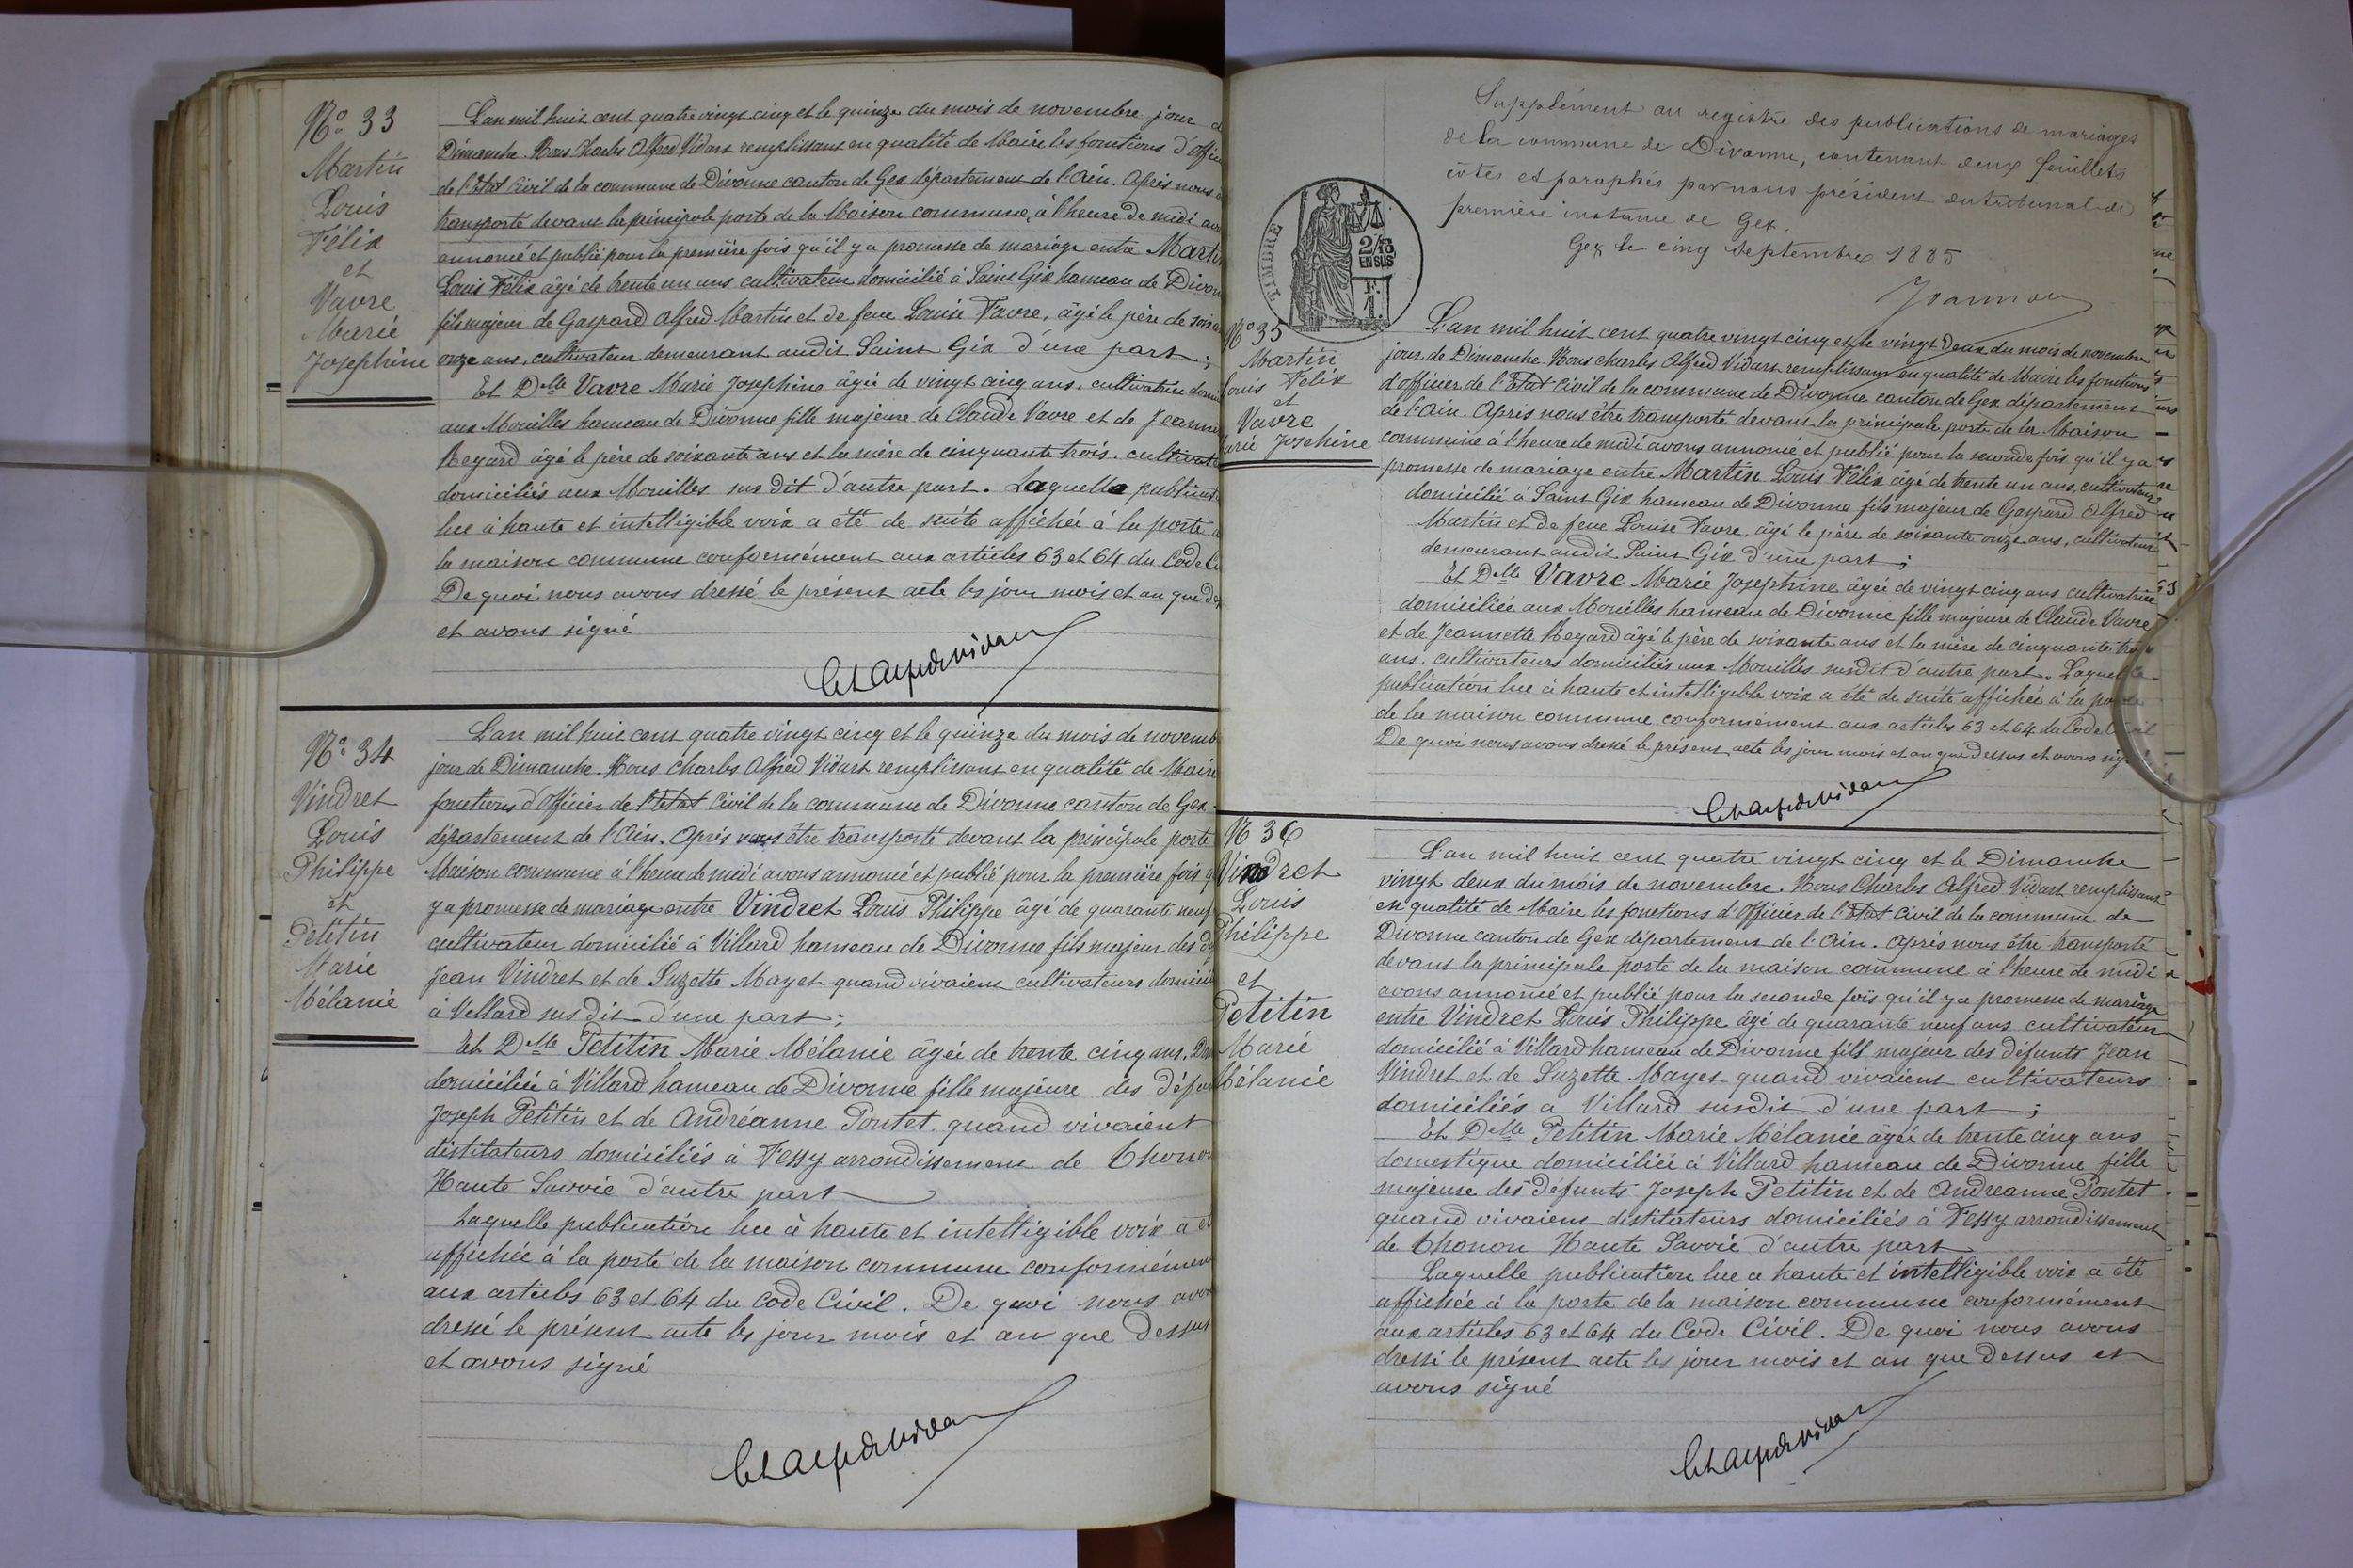 N° 33
Martin
Louis
Félix
et
Vavre
Marie
Josephine
L'an mil huit cent quatre vingt cinq et le quinze du mois de novembre jour
Dimanche. Nous Charles Alfred Vidart remplissant en qualité de Maire les fonctions d'offic
de l'Etat Civil de la commune de Divonne canton de Gex département de l'Ain. Après nous
transporté devant la principale porte de la Maison commune, à l'heure de midi av
annoncé et publié pour la première fois qu'il y a promesse de mariage entre Martin
Louis Félix âgé de trente un ans cultivateur domicilié à Saint Gix hameau de Divon
fils majeur de Gaspard Alfred Martin et de feue Louise Favre, âgé le père de soixan
onze ans, cultivateur demeurant audit Saint Gix d'une part;
Et Delle Vavre Marie Josephine âgée de vingt cinq ans, cultivatrice domi
aux Mouilles hameau de Divonne fille majeure de Claude Vavre et de Jeanne
Regard âgé le père de soixante ans et la mère de cinquante trois, cultivat
domiciliés aux Mouilles sus dit d'autre part. Laquelle publicat
lue à haute et intelligible voix a été de suite affichée à la porte d
la maison commune conformément aux articles 63 et 64 du Code C
De quoi nous avons dressé le présent acte les jour mois et an que de
et avons signé
Ch Alfred Vidart
N° 34
Vindret
Louis
Philippe
et
Petitin
Marie
Mélanie
L'an mil huit cent quatre vingt cinq et le quinze du mois de novemb
jour de Dimanche. Nous Charles Alfred Vidart remplissant en qualité de Maire
fonctions d'Officier de l'Etat Civil de la commune de Divonne canton de Gex
département de l'Ain. Après nous être transporté devant la principale porte
Maison commune à l'heure de midi avons annoncé et publié pour la première fois q
y a promesse de mariage entre Vindret Louis Philippe âgé de quarante neuf
cultivateur domicilié à Villard hameau de Divonne fils majeur des d
Jean Vindret et de Suzette Mayet quand vivaient cultivateurs domici
à Villard sus dit d'une part;
Et Delle Petitin Marie Mélanie âgée de trente cinq ans, Do
domiciliée à Villard hameau de Divonne fille majeure des défun
Joseph Petitin et de Andréanne Pontet quand vivaient
distitateurs domiciliés à Fessy arrondissement de Thonon
Haute Savoie d'autre part
Laquelle publication lue à haute et intelligible voix a é
affichée à la porte de la maison commune conformémen
aux articles 63 et 64 du Code Civil. De quoi nous avon
dressé le présent acte les jour mois et an que dessus
et avons signé
Ch Alfred Vidart
Supplément au registre des publications de mariages
de la commune de Divonne, contenant deux feuillets
côtés et paraphés par nous président du tribunal de
première instance de Gex.
Gex le cinq septembre 1885
TIMBRE
2/10
EN SUS
1 F.
N° 35
Martin
Louis Félix
et
Vavre
Marie Josephine
L'an mil huit cent quatre vingt cinq et le vingt deux du mois de novembre
jour de Dimanche. Nous Charles Alfred Vidart remplissant en qualité de Maire les fonctions
d'officier de l'Etat Civil de la commune de Divonne canton de Gex département
de l'Ain. Après nous être transporté devant la principale porte de la Maison
commune à l'heure de midi avons annoncé et publié pour la seconde fois qu'il y a
promesse de mariage entre Martin Louis Félix âgé de trente un ans, cultivateur
domicilié à Saint Gix hameau de Divonne fils majeur de Gaspard Alfred
Martin et de feue Louise Favre, âgé le père de soixante onze ans, cultivateur
demeurant audit Saint Gix d'une part;
Et Delle Vavre Marie Josephine âgée de vingt cinq ans cultivatrice
domiciliée aux Mouilles hameau de Divonne fille majeure de Claude Vavre
et de Jeannette Regard âgé le père de soixante ans et la mère de cinquante trois
ans, cultivateurs domiciliés aux Mouilles susdit d'autre part. Laquelle
publication lue à haute et intelligible voix a été de suite affichée à la porte
de la maison commune conformément aux articles 63 et 64 du Code Civil
De quoi nous avons dressé le présent acte les jour mois et an que dessus et avons sig
Ch Alfred Vidart
N 36
Vindret
Louis
Philippe
et
Petitin
Marie
Mélanie
L'an mil huit cent quatre vingt cinq et le Dimanche
vingt deux du mois de novembre. Nous Charles Alfred Vidart remplissant
en qualité de Maire les fonctions d'Officier de l'Etat Civil de la commune de
Divonne canton de Gex département de l'Ain. Après nous être transporté
devant la principale porte de la maison commune à l'heure de midi
avons annoncé et publié pour la seconde fois qu'il y a promesse de mariage
entre Vindret Louis Philippe âgé de quarante neuf ans cultivateur
domicilié à Villard hameau de Divonne fils majeur des défunts Jean
Vindret et de Suzette Mayet quand vivaient cultivateurs
domiciliés a Villard susdit d'une part;
Et Delle Petitin Marie Mélanie âgée de trente cinq ans
domestique domiciliée à Villard hameau de Divonne fille
majeure des défunts Joseph Petitin et de Andreanne Pontet
quand vivaient distitateurs domiciliés à Fessy arrondissement
de Thonon Haute Savoie d'autre part
Laquelle publication lue a haute et intelligible voix a été
affichée à la porte de la maison commune conformément
aux articles 63 et 64 du Code Civil. De quoi nous avons
dressé le présent acte les jour mois et an que dessus et
avons signé
Ch Alfred Vidart